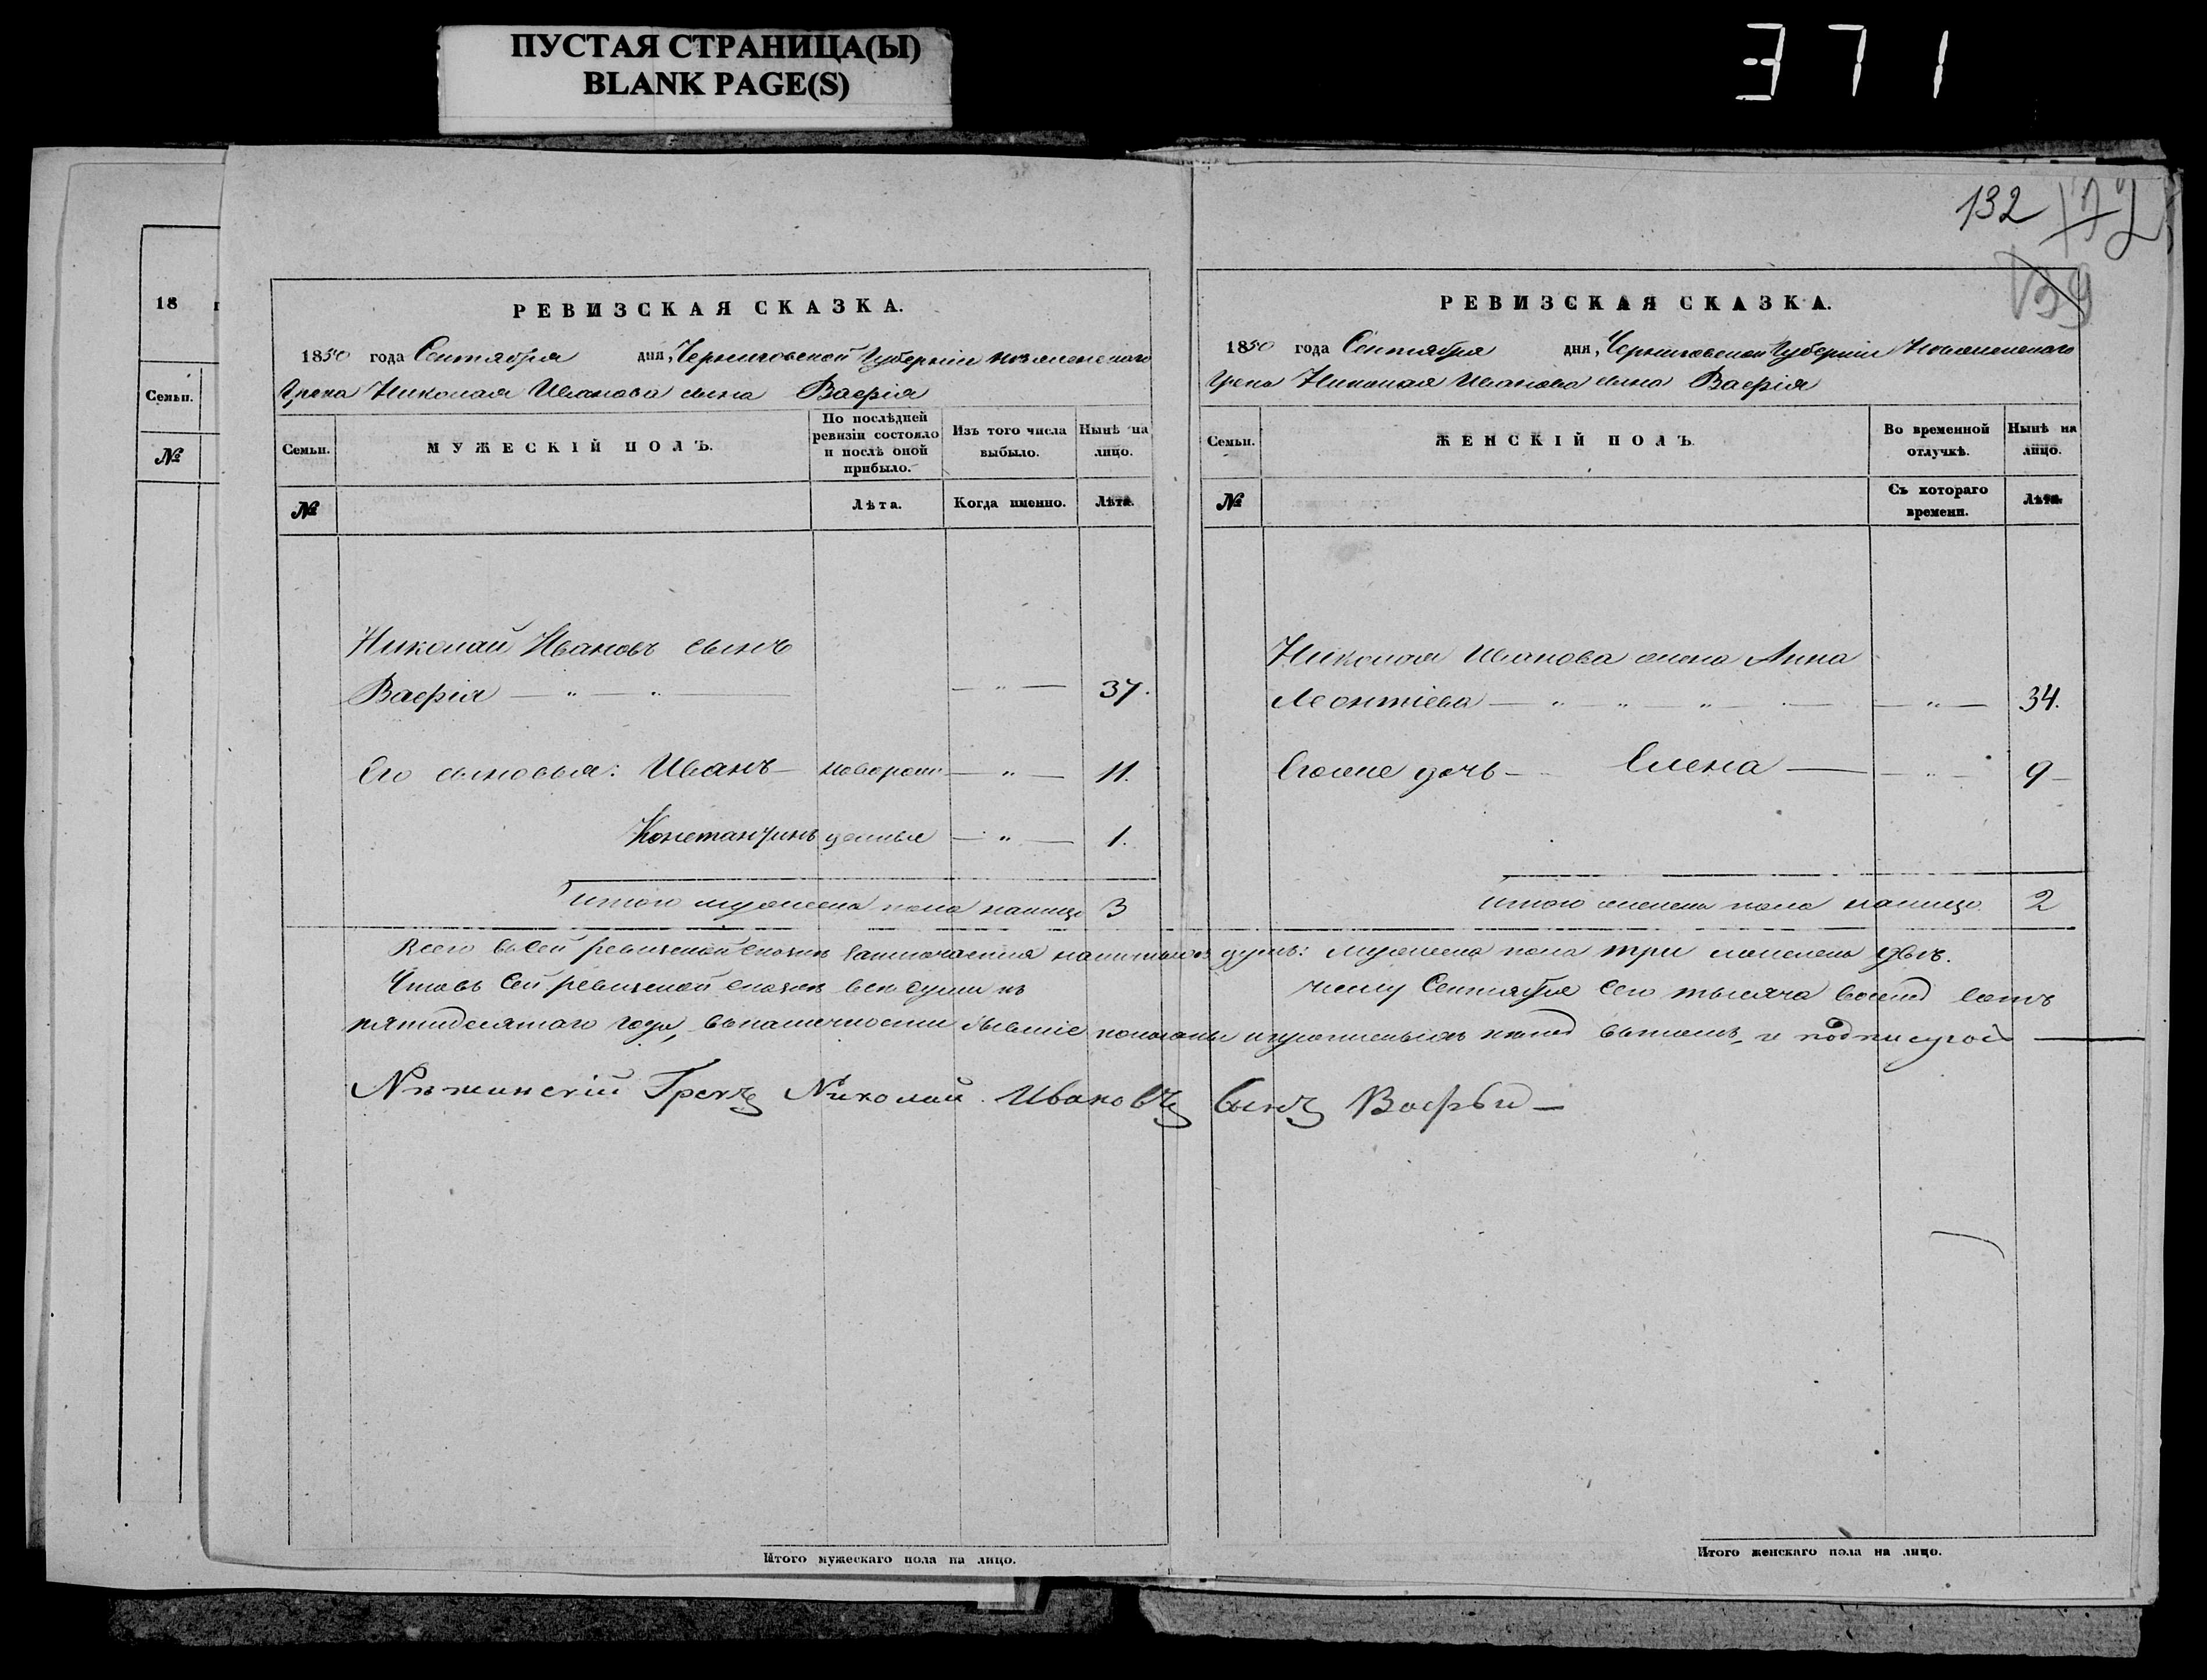 ПУСТАЯ СТРАНИЦА(Ы)
BLANK PAGE(S)
371
132
18
Семьи.
№
РЕВИЗСКАЯ СКАЗКА.
1850 года Сентября дня, Черниговской Губернии
Грека Николая Иванова сына Васрія
Семьи.
МУЖЕСКІЙ ПОЛЪ.
По послѣдней ревизіи состояло и послѣ оной прибыло.
Изъ того числа выбыло.
Нынѣ на лицо.
№
Лѣта.
Когда именно.
Лѣта.
Николай Ивановъ сынъ
Васрія — " — " — — " — 37.
Его сыновья: Иванъ — новорож — " — 11.
Константинъ — " — 1.
итого мужеска пола налицо 3
РЕВИЗСКАЯ СКАЗКА.
1850 года Сентября дня, Черниговской Губернии
Грека Николая Иванова сына Васрія
Семьи.
ЖЕНСКІЙ ПОЛЪ.
Во временной отлучкѣ.
Нынѣ на лицо.
№
Съ котораго времени.
Лѣта.
Николая Иванова жена Анна
Леонтіева — " — " — " — — " — 34.
Егоже дочь — Елена — — " — 9
итого женска пола налицо 2
Всего въ сей ревизской сказкѣ заключается наличныхъ душъ: мужеска пола три женска двѣ.
Что въ сей ревизской сказкѣ всѣ души къ числу Сентября сего тысяча восемъ сотъ
пятидесятаго года, въ наличности бывшіе показаны и прописныхъ нѣтъ в томъ и подписуюсь
Нѣжинскій Грекъ Николай Ивановъ Сынъ Васрьи —
Итого мужескаго пола на лицо.
Итого женскаго пола на лицо.